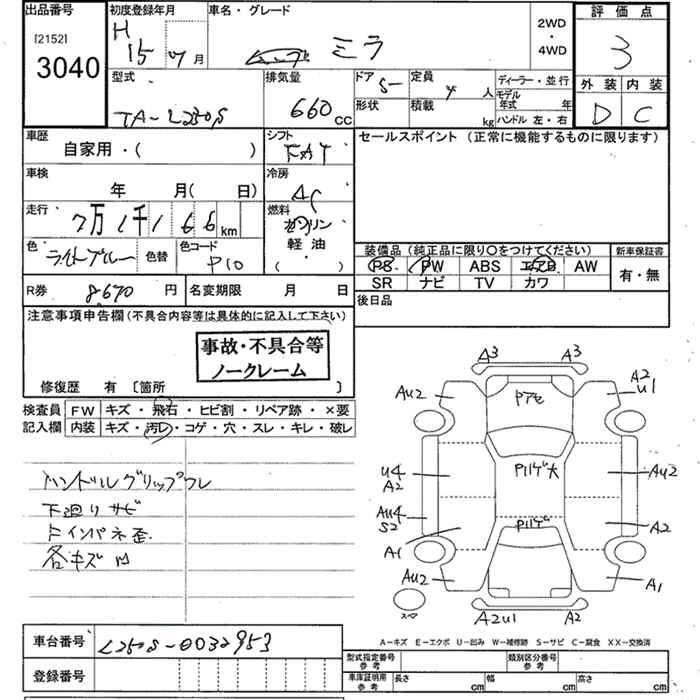 出品番号
[2152]
3040
初度登録年月
H 15 7 月
車名・グレード
ミラ
2WD
・
4WD
評価点
3
外装 内装
D C
型式
TA-L250S
排気量
660 CC
ドア 5
定員 4 人
形状
積載 kg
ディーラー・並行
モデル年式 年
ハンドル 左・右
車歴
自家用・( )
シフト
FAT
セールスポイント (正常に機能するものに限ります)
車検
年 月( 日)
冷房
AC
走行
7万1千166km
燃料
ガソリン
軽油
( )
色
ライトブルー
色替
色コード
P10
装備品 (純正品に限り○をつけてください)
新車保証書
PS PW ABS エアB AW
SR ナビ TV カワ
有・無
R券 8,670 円
名変期限 月 日
後日品
注意事項申告欄 (不具合内容等は具体的に記入して下さい)
事故・不具合等
ノークレーム
修復歴 有 〔箇所 〕
検査員 記入欄
FW キズ・飛石・ヒビ割・リペア跡・×要
内装 キズ・汚レ・コゲ・穴・スレ・キレ・破レ
ハンドルグリップワレ
下廻りサビ
各キズ凹
A3 A3
AU2 A2
U1
Pアセ
U4
A2
PハゲA大
AU2
AU4
S2
Pハゲ
A2
A1
AU2 A1
A2U1 A2
A-キズ E-エクボ U-凹み W-補修跡 S-サビ C-腐食 XX-交換済
車台番号 L250S-0032953
登録番号
型式指定番号 参考
類別区分番号 参考
車庫証明用 参考 長さ cm 幅 cm 高さ cm